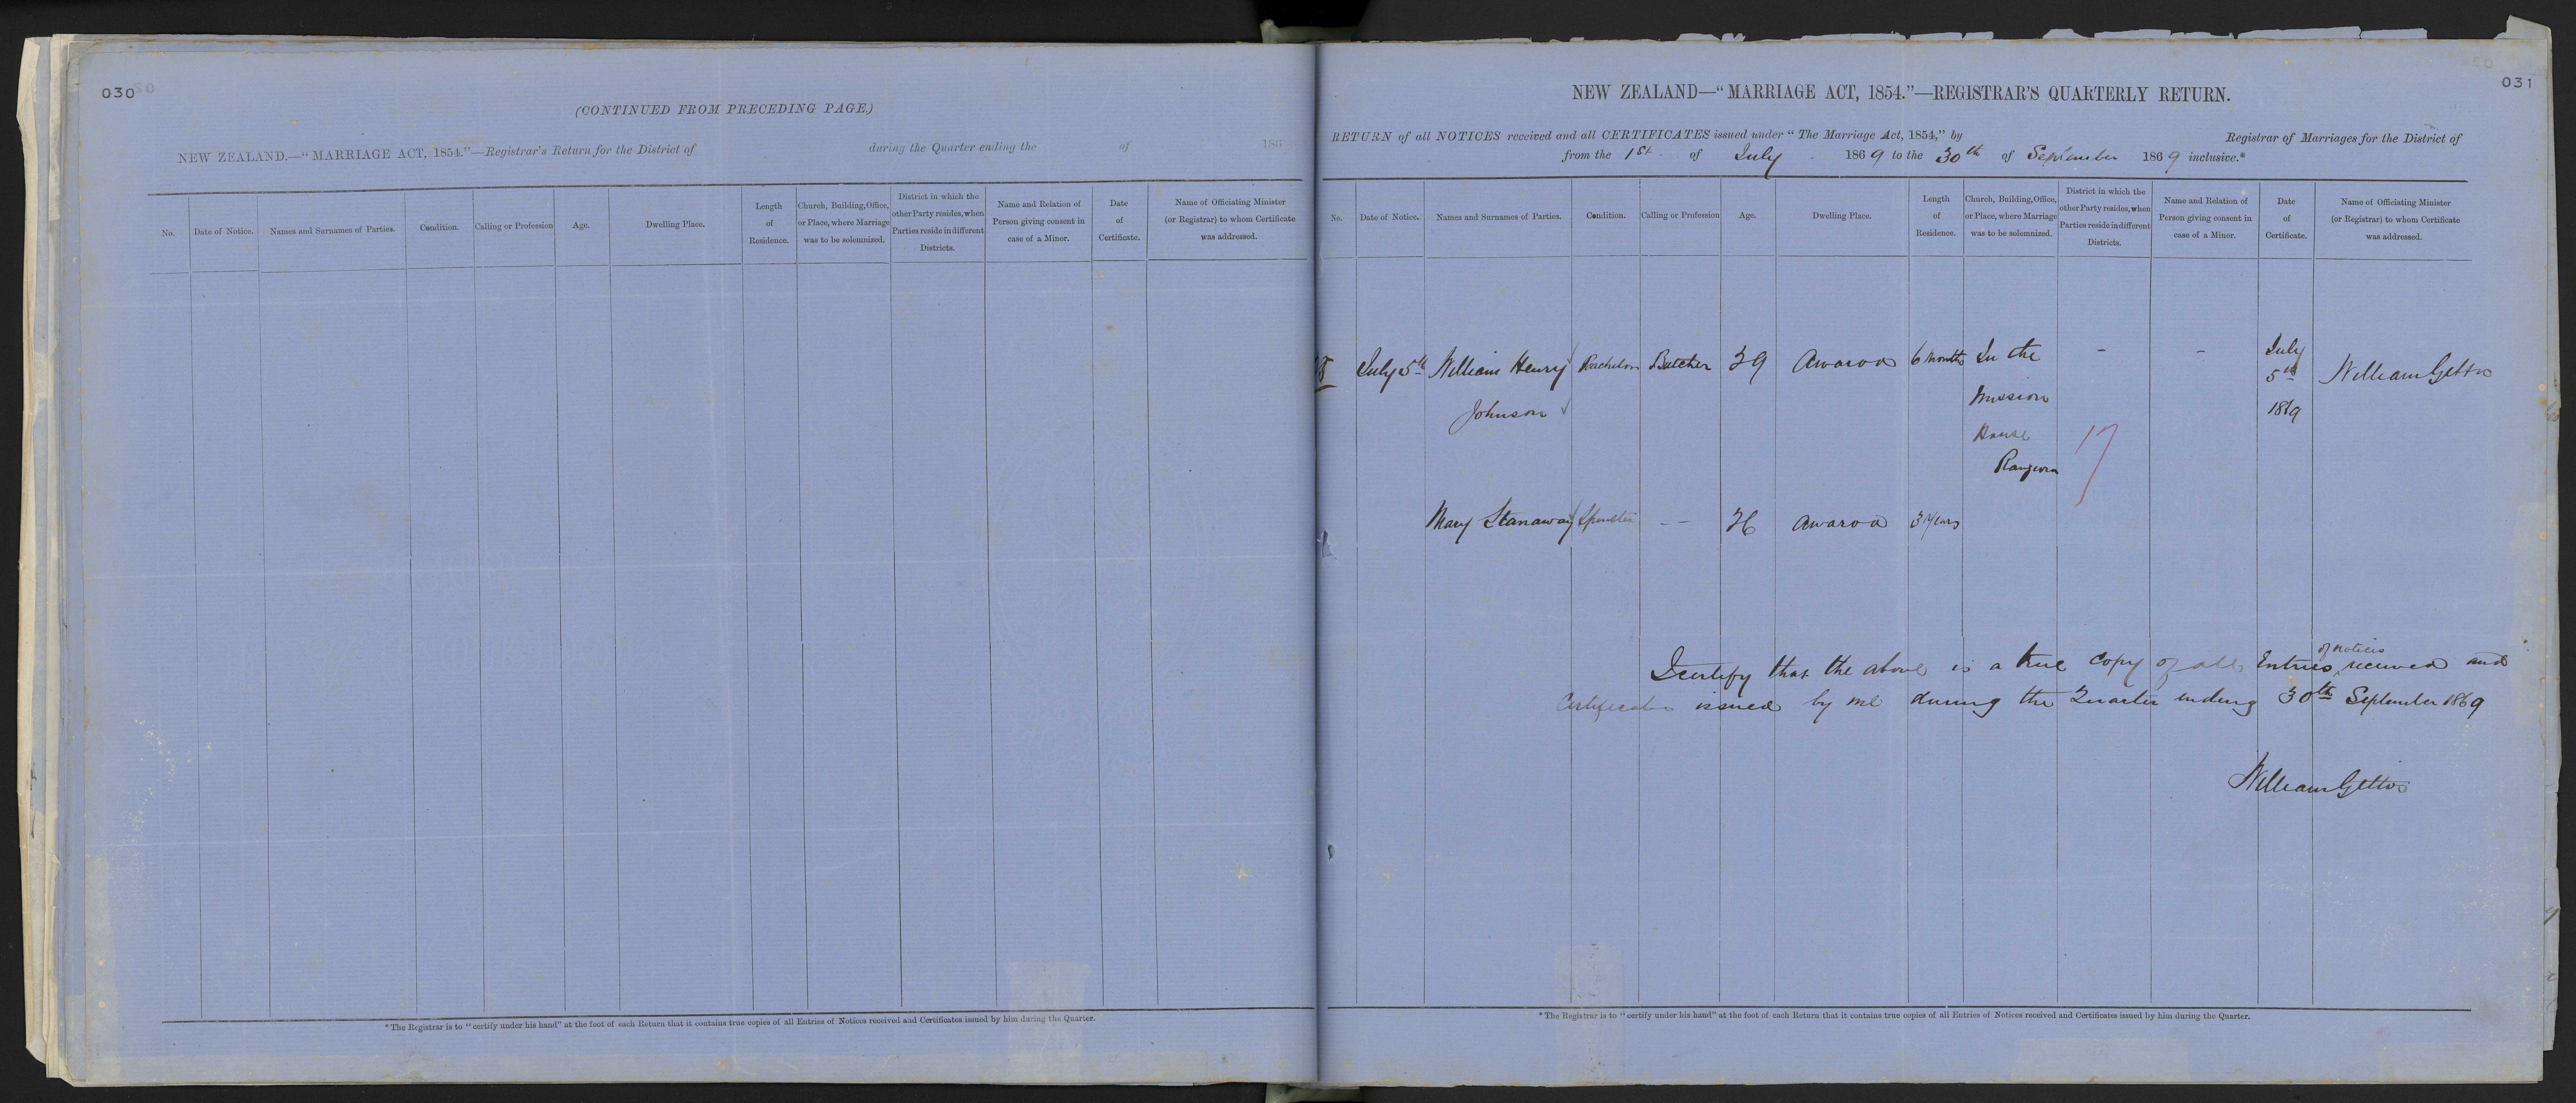 030
(CONTINUED FROM PRECEDING PAGE.)
NEW ZEALAND.—"MARRIAGE ACT, 1854."—Registrar's Return for the District of during the Quarter ending the of 186
No. Date of Notice. Names and Surnames of Parties. Condition. Calling or Profession Age. Dwelling Place. Length of Residence. Church, Building, Office, or Place, where Marriage was to be solemnized. District in which the other Party resides, when Parties reside in different Districts. Name and Relation of Person giving consent in case of a Minor. Date of Certificate. Name of Officiating Minister (or Registrar) to whom Certificate was addressed.
* The Registrar is to "certify under his hand" at the foot of each Return that it contains true copies of all Entries of Notices received and Certificates issued by him during the Quarter.
031
NEW ZEALAND—"MARRIAGE ACT, 1854."—REGISTRAR'S QUARTERLY RETURN.
RETURN of all NOTICES received and all CERTIFICATES issued under "The Marriage Act, 1854," by Registrar of Marriages for the District of
from the 1st of July 1869 to the 30th of September 1869 inclusive.*
No. Date of Notice. Names and Surnames of Parties. Condition. Calling or Profession Age. Dwelling Place. Length of Residence. Church, Building, Office, or Place, where Marriage was to be solemnized. District in which the other Party resides, when Parties reside in different Districts. Name and Relation of Person giving consent in case of a Minor. Date of Certificate. Name of Officiating Minister (or Registrar) to whom Certificate was addressed.
July 5th William Henry Bachelor Butcher 39 Awaroa 6 Months In the - - July
5th William Gittos
Johnson Mission 1869
House 17
Mary Stanaway Spinster -- 36 Awaroa 3 Years
of Notices
I certify that the above is a true copy of all Entries received and
Certificates issued by me during the Quarter ending 30th September 1869
William Gittos
* The Registrar is to "certify under his hand" at the foot of each Return that it contains true copies of all Entries of Notices received and Certificates issued by him during the Quarter.